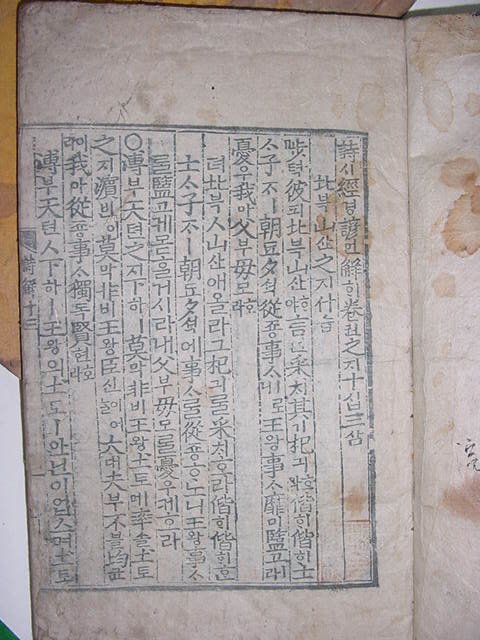 詩시經경諺언解ᄒᆡ卷권之지十십三삼
北븍山산之지什습
陟텩彼피北븍山산ᄒᆞ야言언采ᄎᆡ其기杞긔호라偕ᄒᆡ偕ᄒᆡ士ᄉᆞ
子ᄌᆞㅣ朝됴夕셕從죵事ᄉᆞ호니王왕事ᄉᆞ靡미盬고ㅣ라
憂우我아父부母모호라
뎌北븍山산애올라그杞긔를采ᄎᆡ호라偕ᄒᆡ偕ᄒᆡᄒᆞᆫ
士ᄉᆞ子ᄌᆞㅣ朝됴夕셕에事ᄉᆞ를從죵ᄒᆞ노니王왕事ᄉᆞ
를盬고케몯ᄒᆞᆯ거시라내父부母모를憂우케호라
○溥부天텬之지下하ㅣ莫막非비王왕土토ㅣ며率솔土토
之지濱빈이莫막非비王왕臣신이어ᄂᆞᆯ大대夫부不블均균
이라我아從죵事ᄉᆞ獨독賢현호라
溥부天텬ㅅ下하ㅣ王왕의土토ㅣ아닌이업스며土토
詩解十三